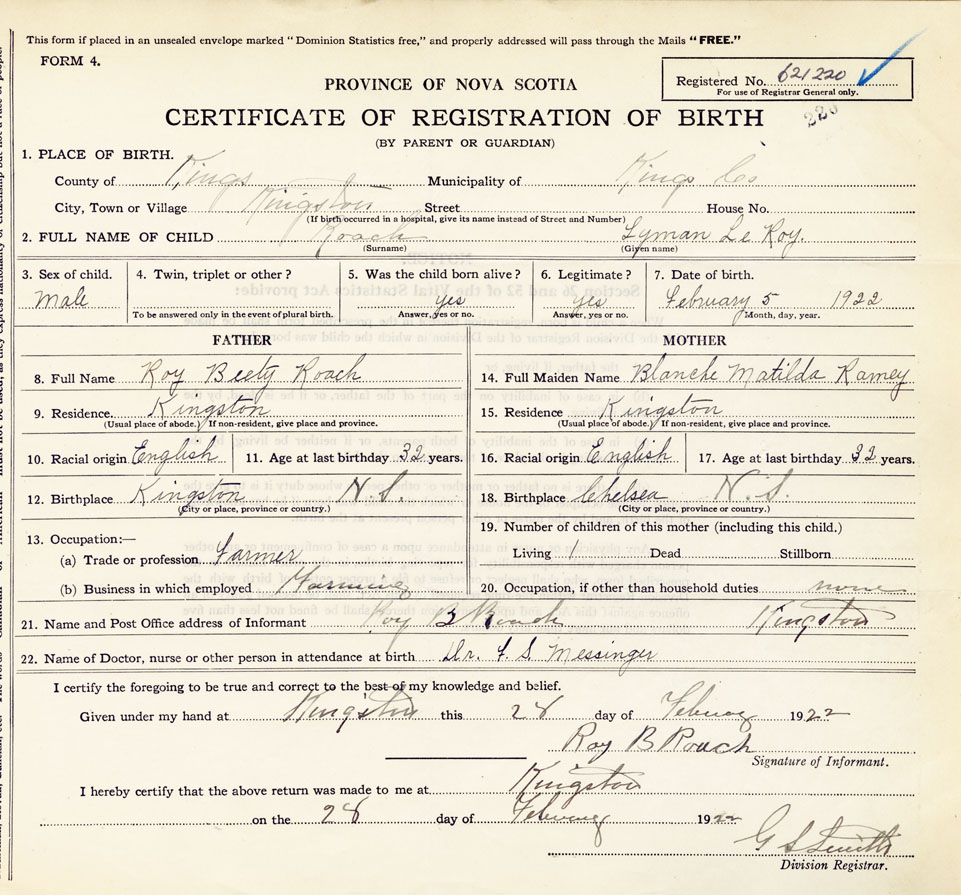 This form if placed in an unsealed envelope marked "Dominion Statistics free," and properly addressed will pass through the Mails "FREE."
FORM 4.
Registered No. 621220
For use of Registrar General only.
PROVINCE OF NOVA SCOTIA
220
CERTIFICATE OF REGISTRATION OF BIRTH
(BY PARENT OR GUARDIAN)
1. PLACE OF BIRTH.
County of Kings Municipality of Kings Co
City, Town or Village Kingston Street House No.
(If birth occurred in a hospital, give its name instead of Street and Number)
2. FULL NAME OF CHILD Roach Lyman Le Roy.
(Surname) (Given name)
3. Sex of child. 4. Twin, triplet or other? 5. Was the child born alive? 6. Legitimate? 7. Date of birth.
Male yes yes February 5 1922
To be answered only in the event of plural birth. Answer, yes or no. Answer, yes or no. Month, day, year.
FATHER MOTHER
8. Full Name Roy Beety Roach 14. Full Maiden Name Blanche Matilda Ramey
9. Residence. Kingston 15. Residence Kingston
(Usual place of abode.) If non-resident, give place and province. (Usual place of abode.) If non-resident, give place and province.
10. Racial origin English 11. Age at last birthday 32 years. 16. Racial origin English 17. Age at last birthday 32 years.
12. Birthplace Kingston N.S. 18. Birthplace Chelsea N.S.
(City or place, province or country.) (City or place, province or country.)
19. Number of children of this mother (including this child.)
13. Occupation:—
(a) Trade or profession Farmer Living 1 Dead Stillborn
(b) Business in which employed Farming 20. Occupation, if other than household duties none
21. Name and Post Office address of Informant Roy B Roach Kingston
22. Name of Doctor, nurse or other person in attendance at birth Dr. F. S. Messinger
I certify the foregoing to be true and correct to the best of my knowledge and belief.
Given under my hand at Kingston this 28 day of February 1922
Roy B Roach
Signature of Informant.
I hereby certify that the above return was made to me at Kingston
on the 28 day of February 1922
G S Smith
Division Registrar.